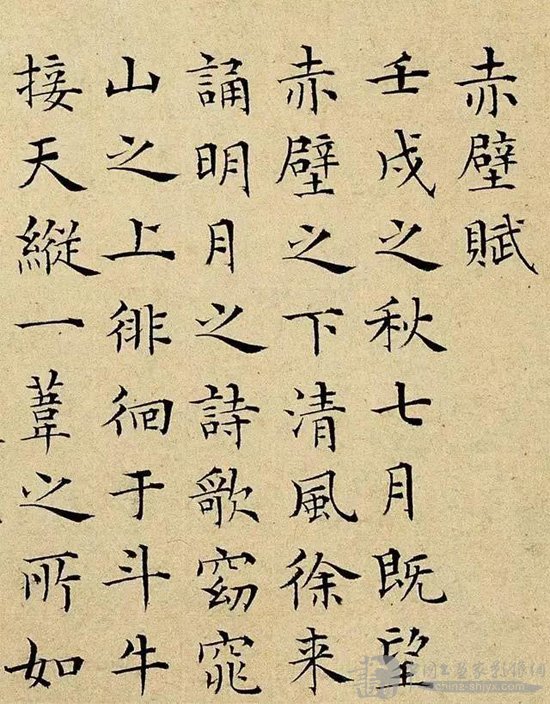 赤壁賦
壬戌之秋七月既望
赤壁之下清風徐来
誦明月之詩歌窈窕
山之上徘徊于斗牛
接天縱一葦之所如
china-shjyx.com